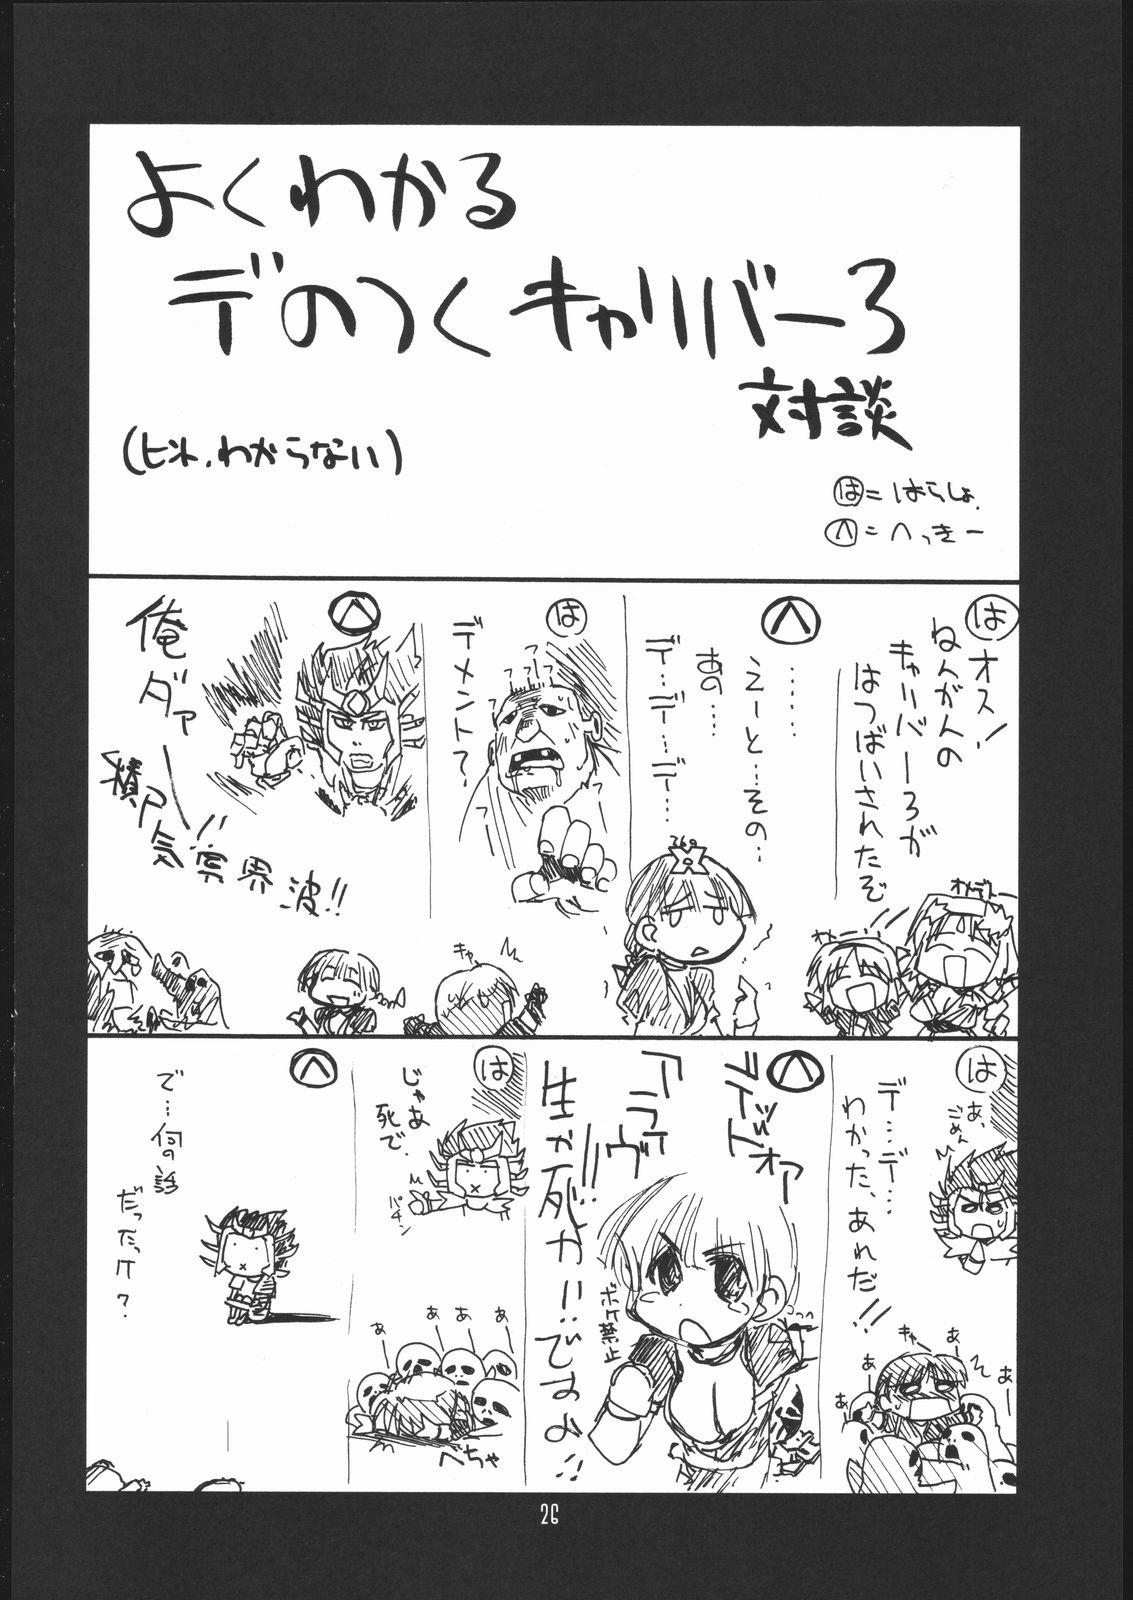 よくわかる
デのつくキャリバー3
対談
(ヒント、わからない)
は=はらしょ
へ=へっきー
は
オス!
ねんがんの
キャリバー3が
はつばいされたぞ
オメデトー
オトー
へ
……
えーと…その…
あの…
デ…デ…デ…
は
デメント?
????
へ
俺ダァー!!
積尸気冥界波!!
キャー
は
あ、ごめん
デ…デ…
わかった、あれだ!!
キャー
あー
あー
あー
あー
へ
デッドオア
アライヴ!!
生か死か!!ですよ!!
ボケ禁止
は
じゃあ
死で。
パチン
あ
あ
あ
あ
へちゃ
へ
で…何の話
だったっけ?
26